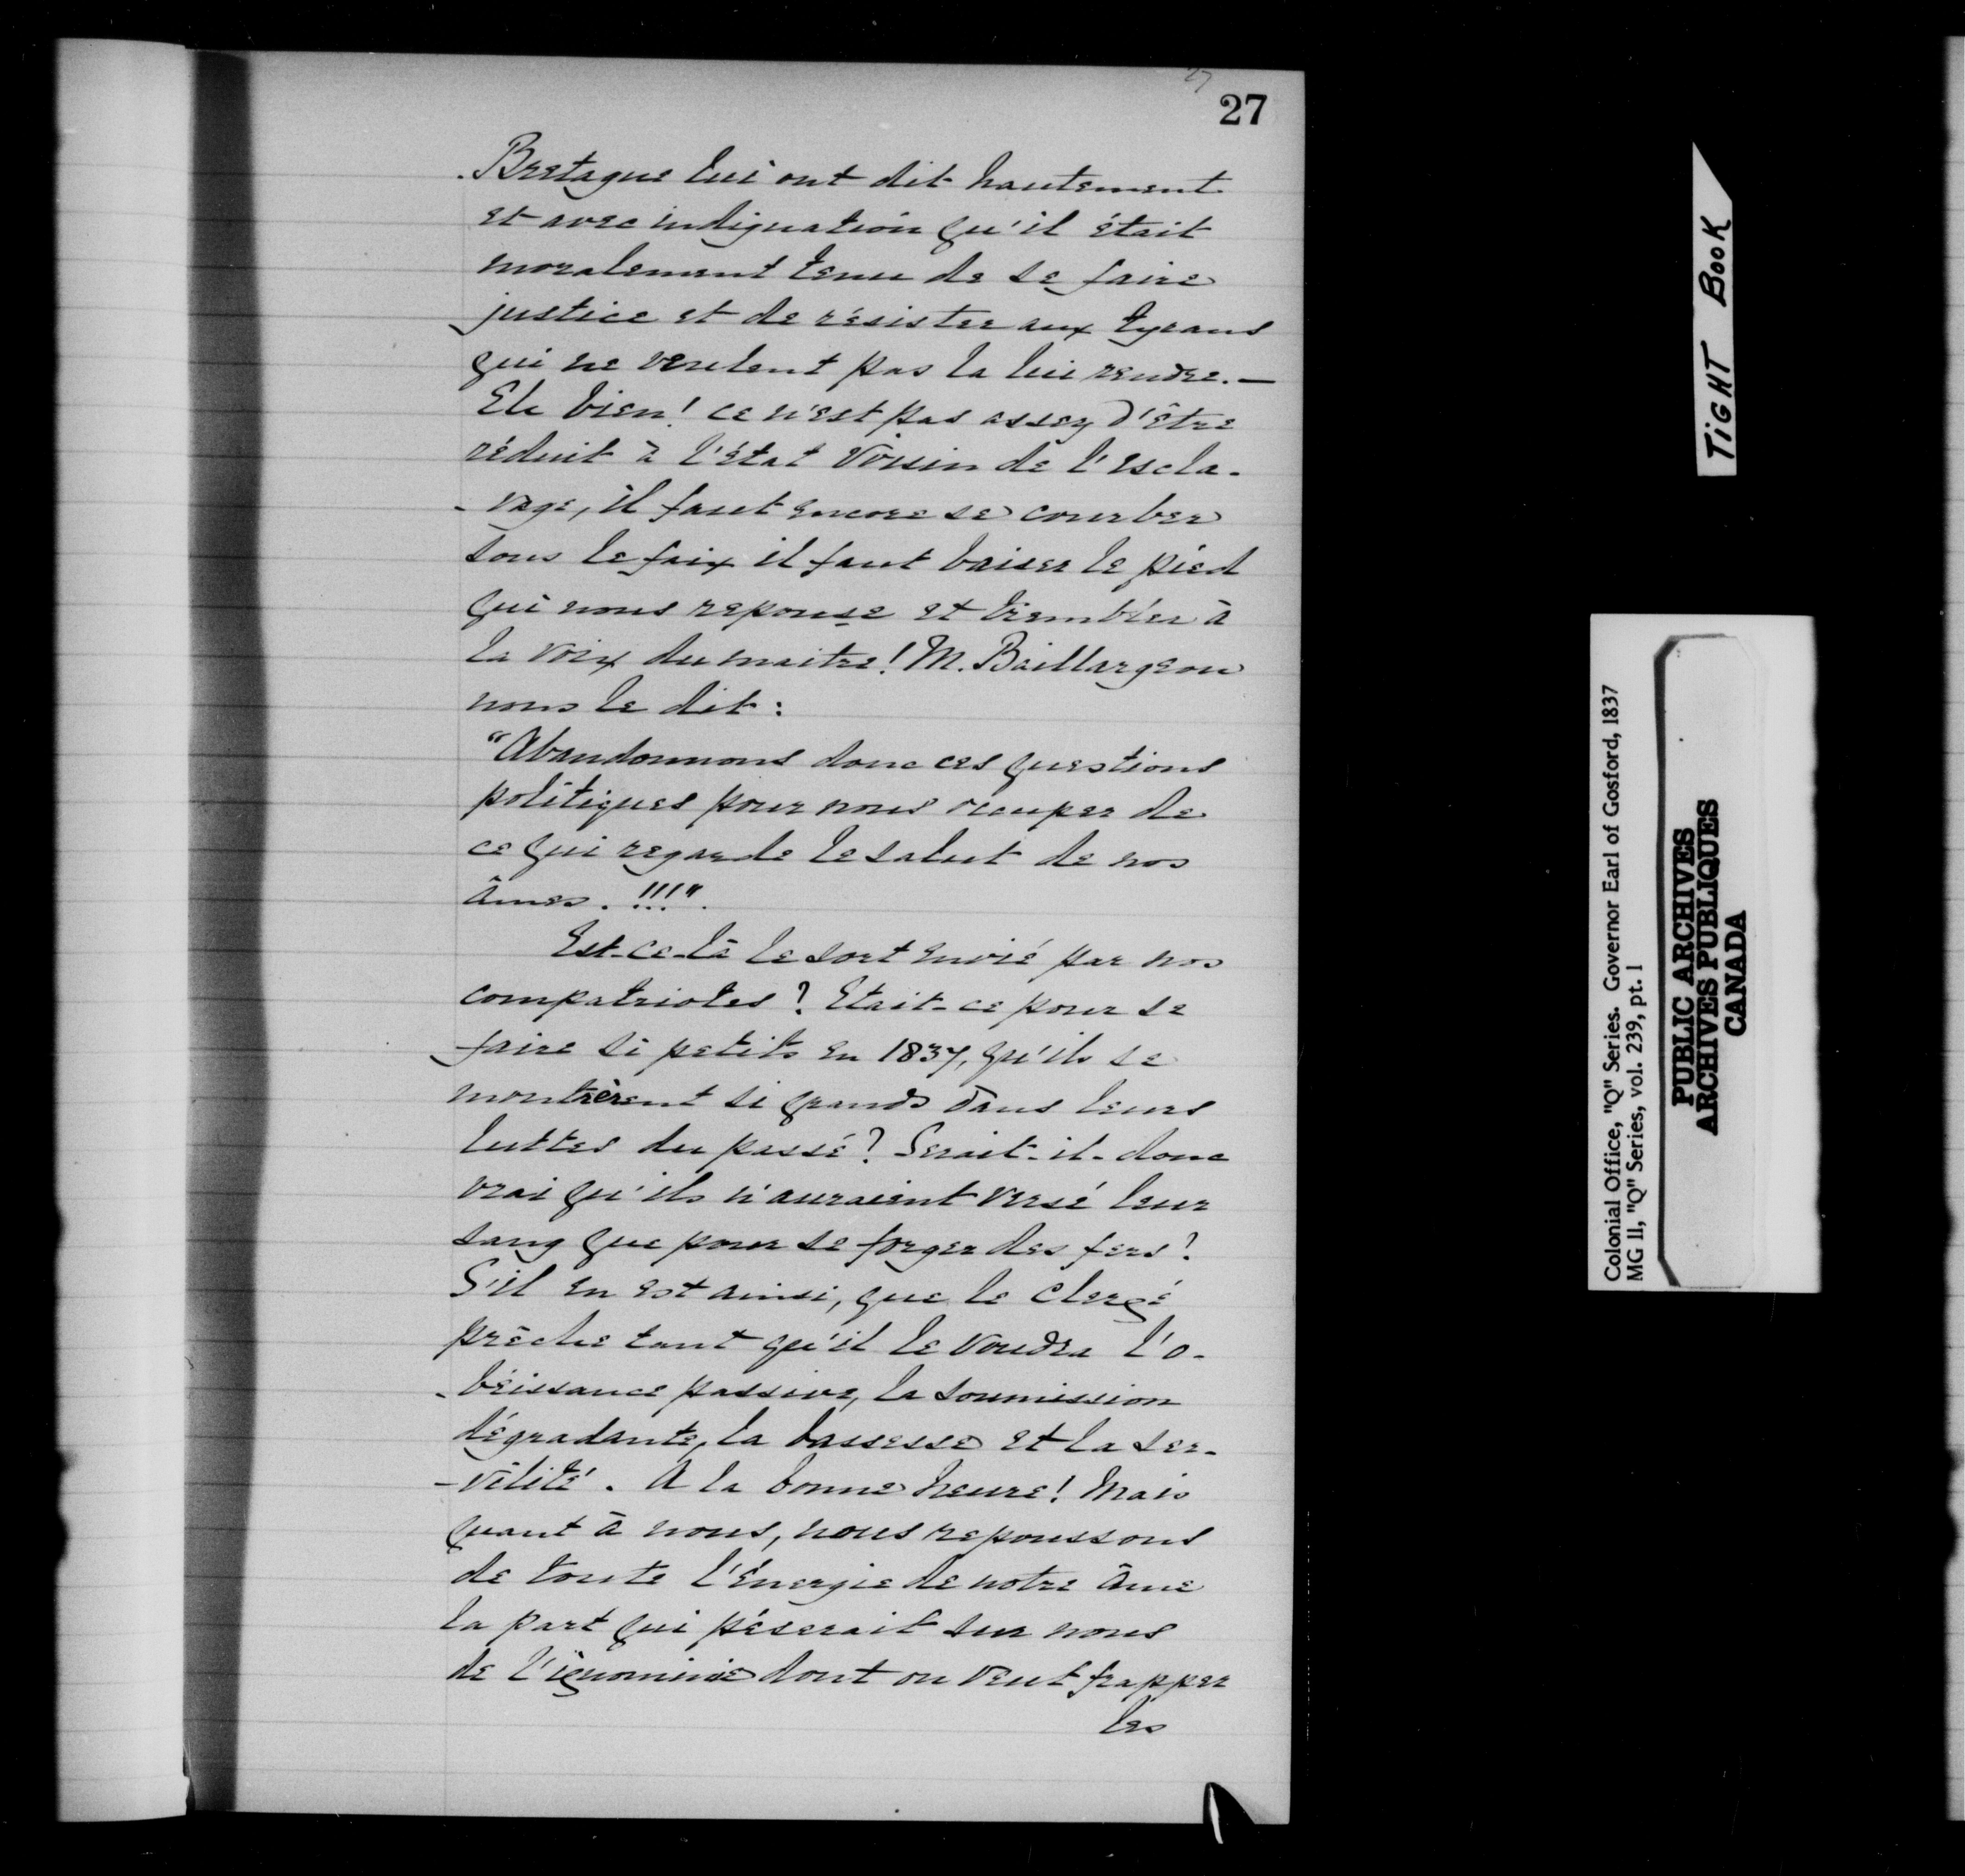 27
27
Bretagne lui ont dit hautement
et avec indignation qu'il était
moralement tenu de se faire
justice et de résister aux tyrans
qui ne veulent pas la lui rendre. —
Eh bien! ce n'est pas assez d'être
réduit à l'état voisin de l'escla-
-vage, il faut encore se courber
sous le faix il faut baiser le pied
qui nous repousse et trembler à
la voix du maitre! M. Baillargeon
nous le dit:
"Abandonnons donc ces questions
politiques pour nous occuper de
ce qui regarde le salut de nos
âmes. !!!".
Est-ce-là le sort envié par nos
compatriotes? Etait-ce pour se
faire si petits en 1837, qu'ils se
montrèrent si grands dans leurs
luttes du passé? Serait-il-donc
vrai qu'ils n'auraient versé leur
sang que pour se forger des fers?
S'il en est ainsi, que le Clergé
prêche tant qu'il le voudra l'o-
-béissance passive, la soumission
dégradante, la bassesse et la ser-
-vilité. A la bonne heure! Mais
quant à nous, nous repoussons
de toute l'énergie de notre âme
la part qui péserait sur nous
de l'ignominie dont on veut frapper
les
TIGHT BOOK
Colonial Office, "Q" Series. Governor Earl of Gosford, 1837
MG 11, "Q" Series, vol. 239, pt. 1
PUBLIC ARCHIVES
ARCHIVES PUBLIQUES
CANADA